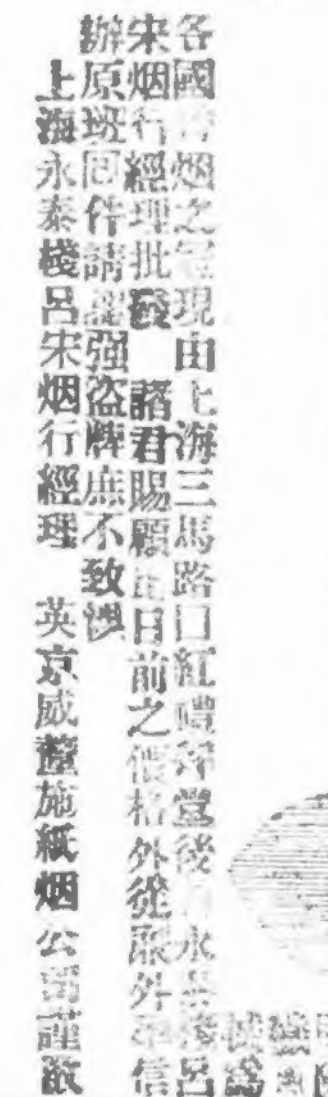 各國烟之冠現由上海三馬路口紅禮拜堂後永泰棧呂
宋烟行經理批發 諸君賜顧比日前之價格外從廉外埠信
辦原班回件請認强盜牌庶不致悞
上海永泰棧呂宋烟行經理 英京威警施紙烟公司謹啟